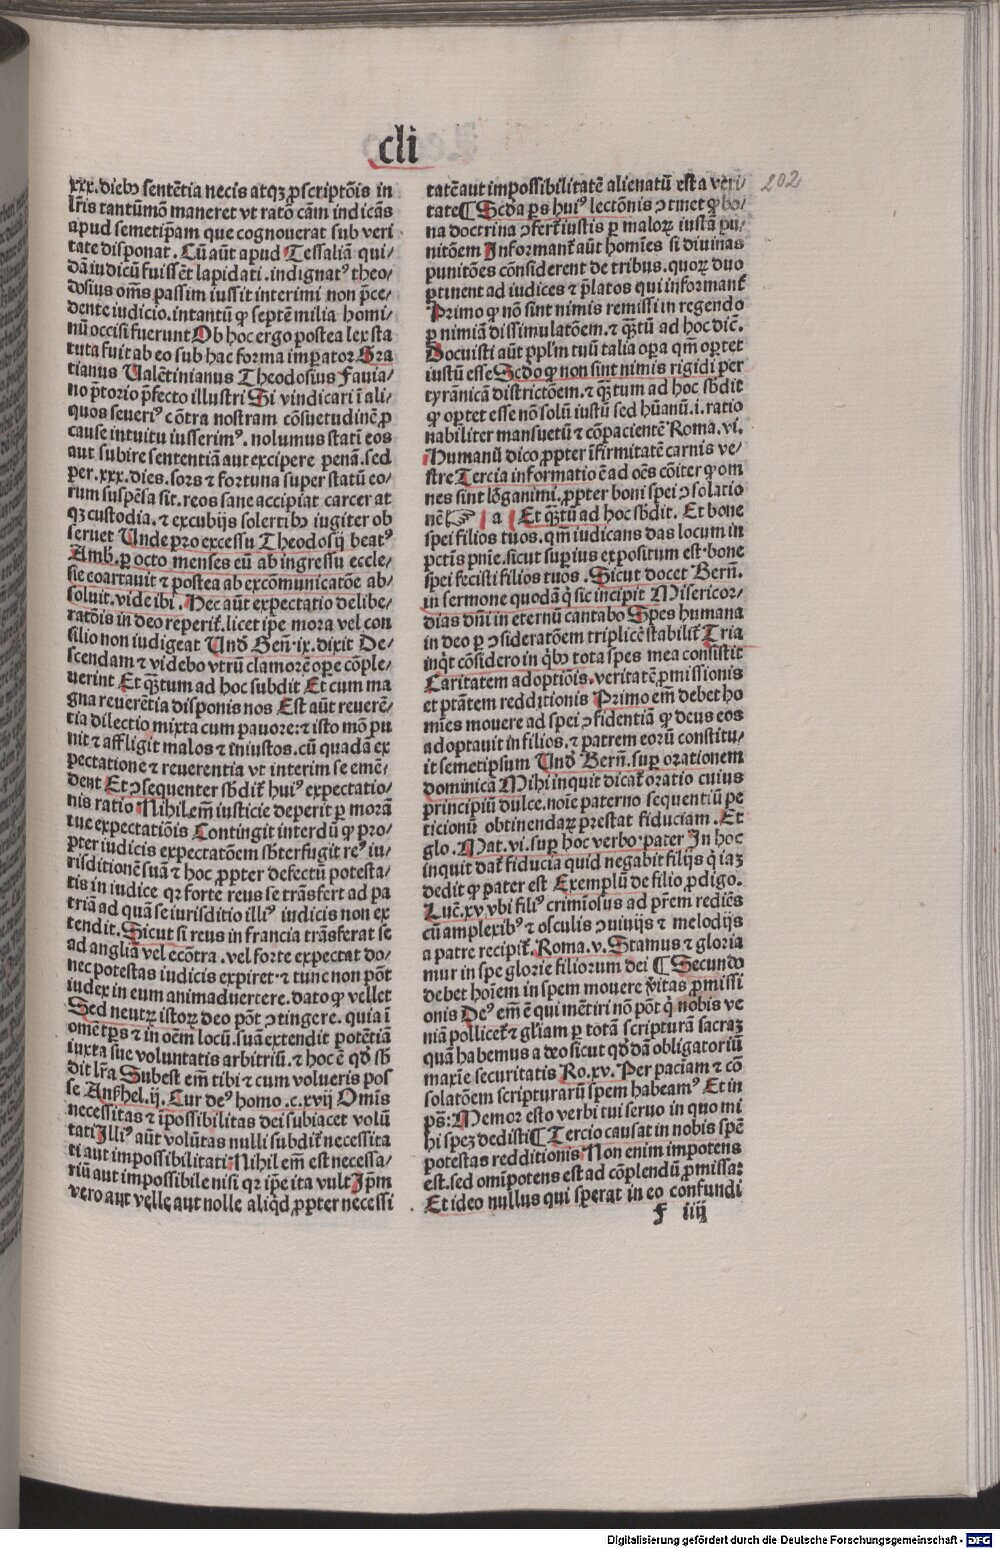 cli
202
xxx.diebꝰ sentētia necis atqꝫ ꝓscriptōis in
lr̄is tantūmō maneret vt ratō cām indicās
apud semetip̄am que cognouerat sub veri
tate disponat. Cū aūt apud Tessaliā qui/
dā iudicū fuissēt lapidati. indignatꝰ theo/
dosius om̄s passim iussit interimi non p̄ce/
dente iudicio. intantū ꝙ septē milia homi/
nū occisi fuerunt Ob hoc ergo postea lex sta
tuta fuit ab eo sub hac forma imperator Gra
tianus Valētinianus Theodosius Fauia/
no p̄torio p̄fecto illustri Si vindicari ī ali/
quos seueriꝰ cōtra nostram cōsuetudinē ꝓ
cause intuitu iusserimꝰ. nolumus statī eos
aut subire sententiā aut excipere penā. sed
per.xxx.dies. sors ⁊ fortuna super statū eo/
rum suspēsa sit. reos sane accipiat carcer at
qꝫ custodia. ⁊ excubijs solertibꝰ iugiter ob
seruet Vnde pro excessu Theodosij beatꝰ
Amb. ꝑ octo menses eū ab ingressu eccle/
sie coartauit ⁊ postea ab excōmunicatōe ab/
soluit. vide ibi. Hec aūt expectatio delibe/
ratōis in deo reperiť. licet ip̄e mora vel con
silio non iudigeat Vnd̄ Beñ.ix. dixit De/
scendam ⁊ videbo vtrū clamorē oꝑe cōple/
uerint Et qꝫtum ad hoc subdit Et cum ma
gna reuerētia disponis nos Est aūt reuerē/
tia dilectio mixta cum pauore: ⁊ isto mō pu
nit ⁊ affligit malos ⁊ īniustos. cū quadā ex
pectatione ⁊ reuerentia vt interim se emē/
dent Et ↄsequenter sbdiť huiꝰ expectatio/
nis ratio Nihil em̄ iusticie deperit ꝑ morā
tue expectatiōis Contingit interdū ꝙ pro/
pter iudicis expectatōem sbterfugit reꝰ iu/
risditionē suā ⁊ hoc ꝓpter defectū potesta/
tis in iudice qr forte reus se trāsfert ad pa
triā ad quā se iurisditio illiꝰ iudicis non ex
tendit. Sicut si reus in francia trāsferat se
ad angliā vel ecōtra. vel forte expectat do/
nec potestas iudicis expiret. ⁊ tunc non pōt
iudex in eum animaduertere. dato ꝙ vellet
Sed neutꝝ istoꝝ deo pōt ↄtingere. quia ī
omē tꝑs ⁊ in oēm locū. suā extendit potētiā
iuxta sue voluntatis arbitriū. ⁊ hoc ē qd̄ sb
dit lr̄a Subest em̄ tibi ⁊ cum volueris pos
se Anshel.ij. Cur deꝰ homo.c.xvij Omis
necessitas ⁊ īpossibilitas dei subiacet volū
tati Illiꝰ aūt volūtas nulli subdiť necessita
ti aut impossibilitati Nihil em̄ est necessa/
riū aut impossibile nisi qr ip̄e ita vult Ip̄m
vero aut velle aut nolle aliqd̄ ꝓpter necessi
tatē aut impossibilitatē alienatū est a veri/
tate ¶ Scd̄a ps huiꝰ lectōnis ↄtinet ꝙ bo/
na doctrina ↄferť iustis ꝑ maloꝝ iustā pu/
nitōem Informanť aūt homīes si diuinas
punitōes cōsiderent de tribus. quoꝝ duo
ꝑtinent ad iudices ⁊ p̄latos qui informanť
Primo ꝙ nō sint nimis remissi in regendo
ꝑ nimiā dissimulatōem. ⁊ qꝫtū ad hoc dic̄.
Docuisti aūt ppl̄m tuū talia oꝑa qm̄ oꝑtet
iustū esse Scd̄o ꝙ non sint nimis rigidi per
tyrānicā districtōem. ⁊ qꝫtum ad hoc sbdit
ꝙ oꝑtet esse nō solū iustū sed hūanū.i. ratio
nabiliter mansuetū ⁊ cōpacientē Roma.vi.
Humanū dico ꝓpter īfirmitatē carnis ve/
stre Tercia informatio ē ad oēs cōiter ꝙ om
nes sint lōganimi. ꝓpter boni spei ↄsolatio
nē ☞ a Et qꝫtū ad hoc sbdit. Et bone
spei filios tuos. qm̄ iudicans das locum in
pctīs pn̄ie. sicut superius expositum est. bone
spei fecisti filios tuos. Sicut docet Berñ.
in sermone quodā q̇ sic incipit Misericor/
dias dn̄i in eternū cantabo Spes humana
in deo ꝑ ↄsideratōem triplicē stabiliť Tria
inq̇t cōsidero in qͥbꝰ tota spes mea consistit
Caritatem adoptiōis. veritatē ꝓmissionis
et p̄tātem redditionis Primo em̄ debet ho
mīes mouere ad spei ↄfidentiā ꝙ deus eos
adoptauit in filios. ⁊ patrem eorū constitu/
it semetipsum Vnd̄ Berñ. suꝑ orationem
dominicā Mihi inquit dicať oratio cuius
principiū dulce. noīe paterno sequentiū pe
ticionū obtinendaꝝ prestat fiduciam. Et
glo. Mat.vi. suꝑ hoc verbo. pater In hoc
inquit dať fiducia quid negabit filijs q̇ iaꝫ
dedit ꝙ pater est Exemplū de filio ꝓdigo.
Luc̄.xv. vbi filiꝰ crimīosus ad pr̄em rediēs
cū amplexibꝰ ⁊ osculis ↄuiuijs ⁊ melodijs
a patre recipiť. Roma.v. Stamus ⁊ gloria
mur in spe glorie filiorum dei ¶ Secundo
debet hoīem in spem mouere v̄itas ꝓmissi
onis Deꝰ em̄ ē qui mētiri nō pōt q̇ nobis ve
niā polliceť ⁊ gl̄iam ꝑ totā scripturā sacraꝫ
quā habemus a deo sicut qd̄dā obligatoriū
maxīe securitatis Ro.xv. Per paciam ⁊ cō
solatōem scripturarū spem habeamꝰ Et in
ps̄: Memor esto verbi tui seruo in quo mi
hi speꝫ dedisti ¶ Tercio causat in nobis spē
potestas redditionis Non enim impotens
est. sed omīpotens est ad cōplendū ꝓmissaꝫ
Et ideo nullus qui sperat in eo confundi
f iiij
Digitalisierung gefördert durch die Deutsche Forschungsgemeinschaft - DFG